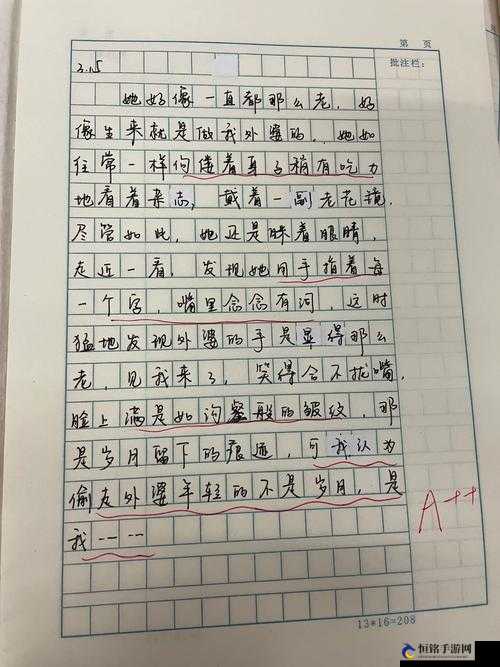 第 页
批注栏:
3.15
她好像一直都那么老,好
像生来就是做我外婆的,她如
往常一样佝偻着身子稍有吃力
地看着杂志,戴着一副老花镜.
尽管如此,她还是眯着眼睛,
走近一看,发现她用手指着每
一个字,嘴里念念有词,这时
猛地发现外婆的手是显得那么
老,见我来了,笑得合不拢嘴,
脸上满是如沟壑般的皱纹,那
是岁月留下的痕迹,可我认为
偷走外婆年轻的不是岁月,是
我----
A++
13*16=208
恒铭手游网